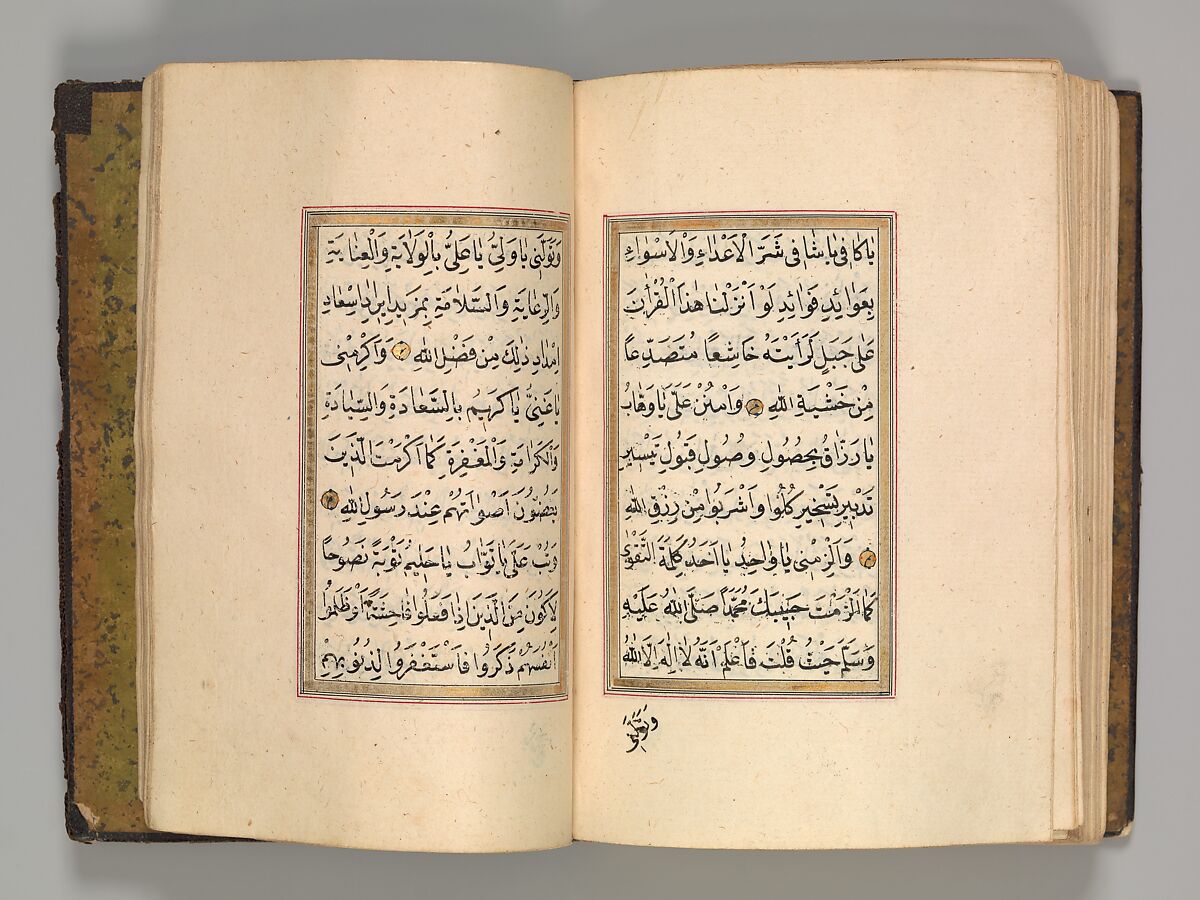 يَا كَافِي يَا شَافِي شَرَّ الْاَعْدَاءِ وَالْاَسْوَاءِ
بِعَوَائِدِ فَوَائِدِ لَوْ اَنْزَلْنَا هٰذَا الْقُرْاٰنَ
عَلٰى جَبَلٍ لَرَاَيْتَهُ خَاشِعًا مُتَصَدِّعًا
مِنْ خَشْيَةِ اللّٰهِ وَامْنُنْ عَلَيَّ يَا وَهَّابُ
يَا رَزَّاقُ بِحُصُولِ وُصُولِ قَبُولِ تَيْسِيرِ
تَدْبِيرِ تَسْخِيرِ كُلُوا وَاشْرَبُوا مِنْ رِزْقِ اللّٰهِ
وَاَلْزِمْنِي يَا وَاحِدُ يَا اَحَدُ كَلِمَةَ التَّقْوٰى
كَمَا اَلْزَمْتَ حَبِيبَكَ مُحَمَّدًا صَلَّى اللّٰهُ عَلَيْهِ
وَسَلَّمَ حَيْثُ قُلْتَ فَاعْلَمْ اَنَّهُ لَا اِلٰهَ اِلَّا اللّٰهُ
وَتَوَلَّنِي
وَتَوَلَّنِي يَا وَلِيُّ يَا عَلِيُّ بِالْوَلَايَةِ وَالْعِنَايَةِ
وَالرِّعَايَةِ وَالسَّلَامَةِ بِمَزِيدِ اِيرَادِ اِسْعَادِ
اِمْدَادِ ذٰلِكَ مِنْ فَضْلِ اللّٰهِ وَاَكْرِمْنِي
يَا غَنِيُّ يَا كَرِيمُ بِالسَّعَادَةِ وَالسِّيَادَةِ
وَالْكَرَامَةِ وَالْمَغْفِرَةِ كَمَا اَكْرَمْتَ الَّذِينَ
يَغُضُّونَ اَصْوَاتَهُمْ عِنْدَ رَسُولِ اللّٰهِ
وَتُبْ عَلَيَّ يَا تَوَّابُ يَا حَلِيمُ تَوْبَةً نَصُوحًا
لِاَكُونَ مِنَ الَّذِينَ اِذَا فَعَلُوا فَاحِشَةً اَوْ ظَلَمُوا
اَنْفُسَهُمْ ذَكَرُوا فَاسْتَغْفَرُوا لِذُنُوبِهِمْ